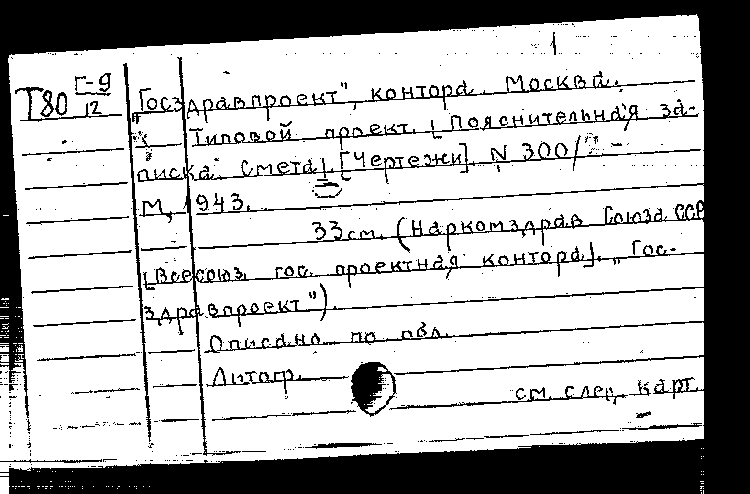 1
Т80 Г-9/12
„Госздравпроект", контора. Москва.
Типовой проект. [Пояснительная за-
писка. Смета]. [Чертежи]. N 300/2-
М, 1943.
33см. (Наркомздрав Союза ССР
[Всесоюз. гос. проектная контора]. „Гос-
здравпроект").
Описано по обл.
Литогр.
см. след. карт